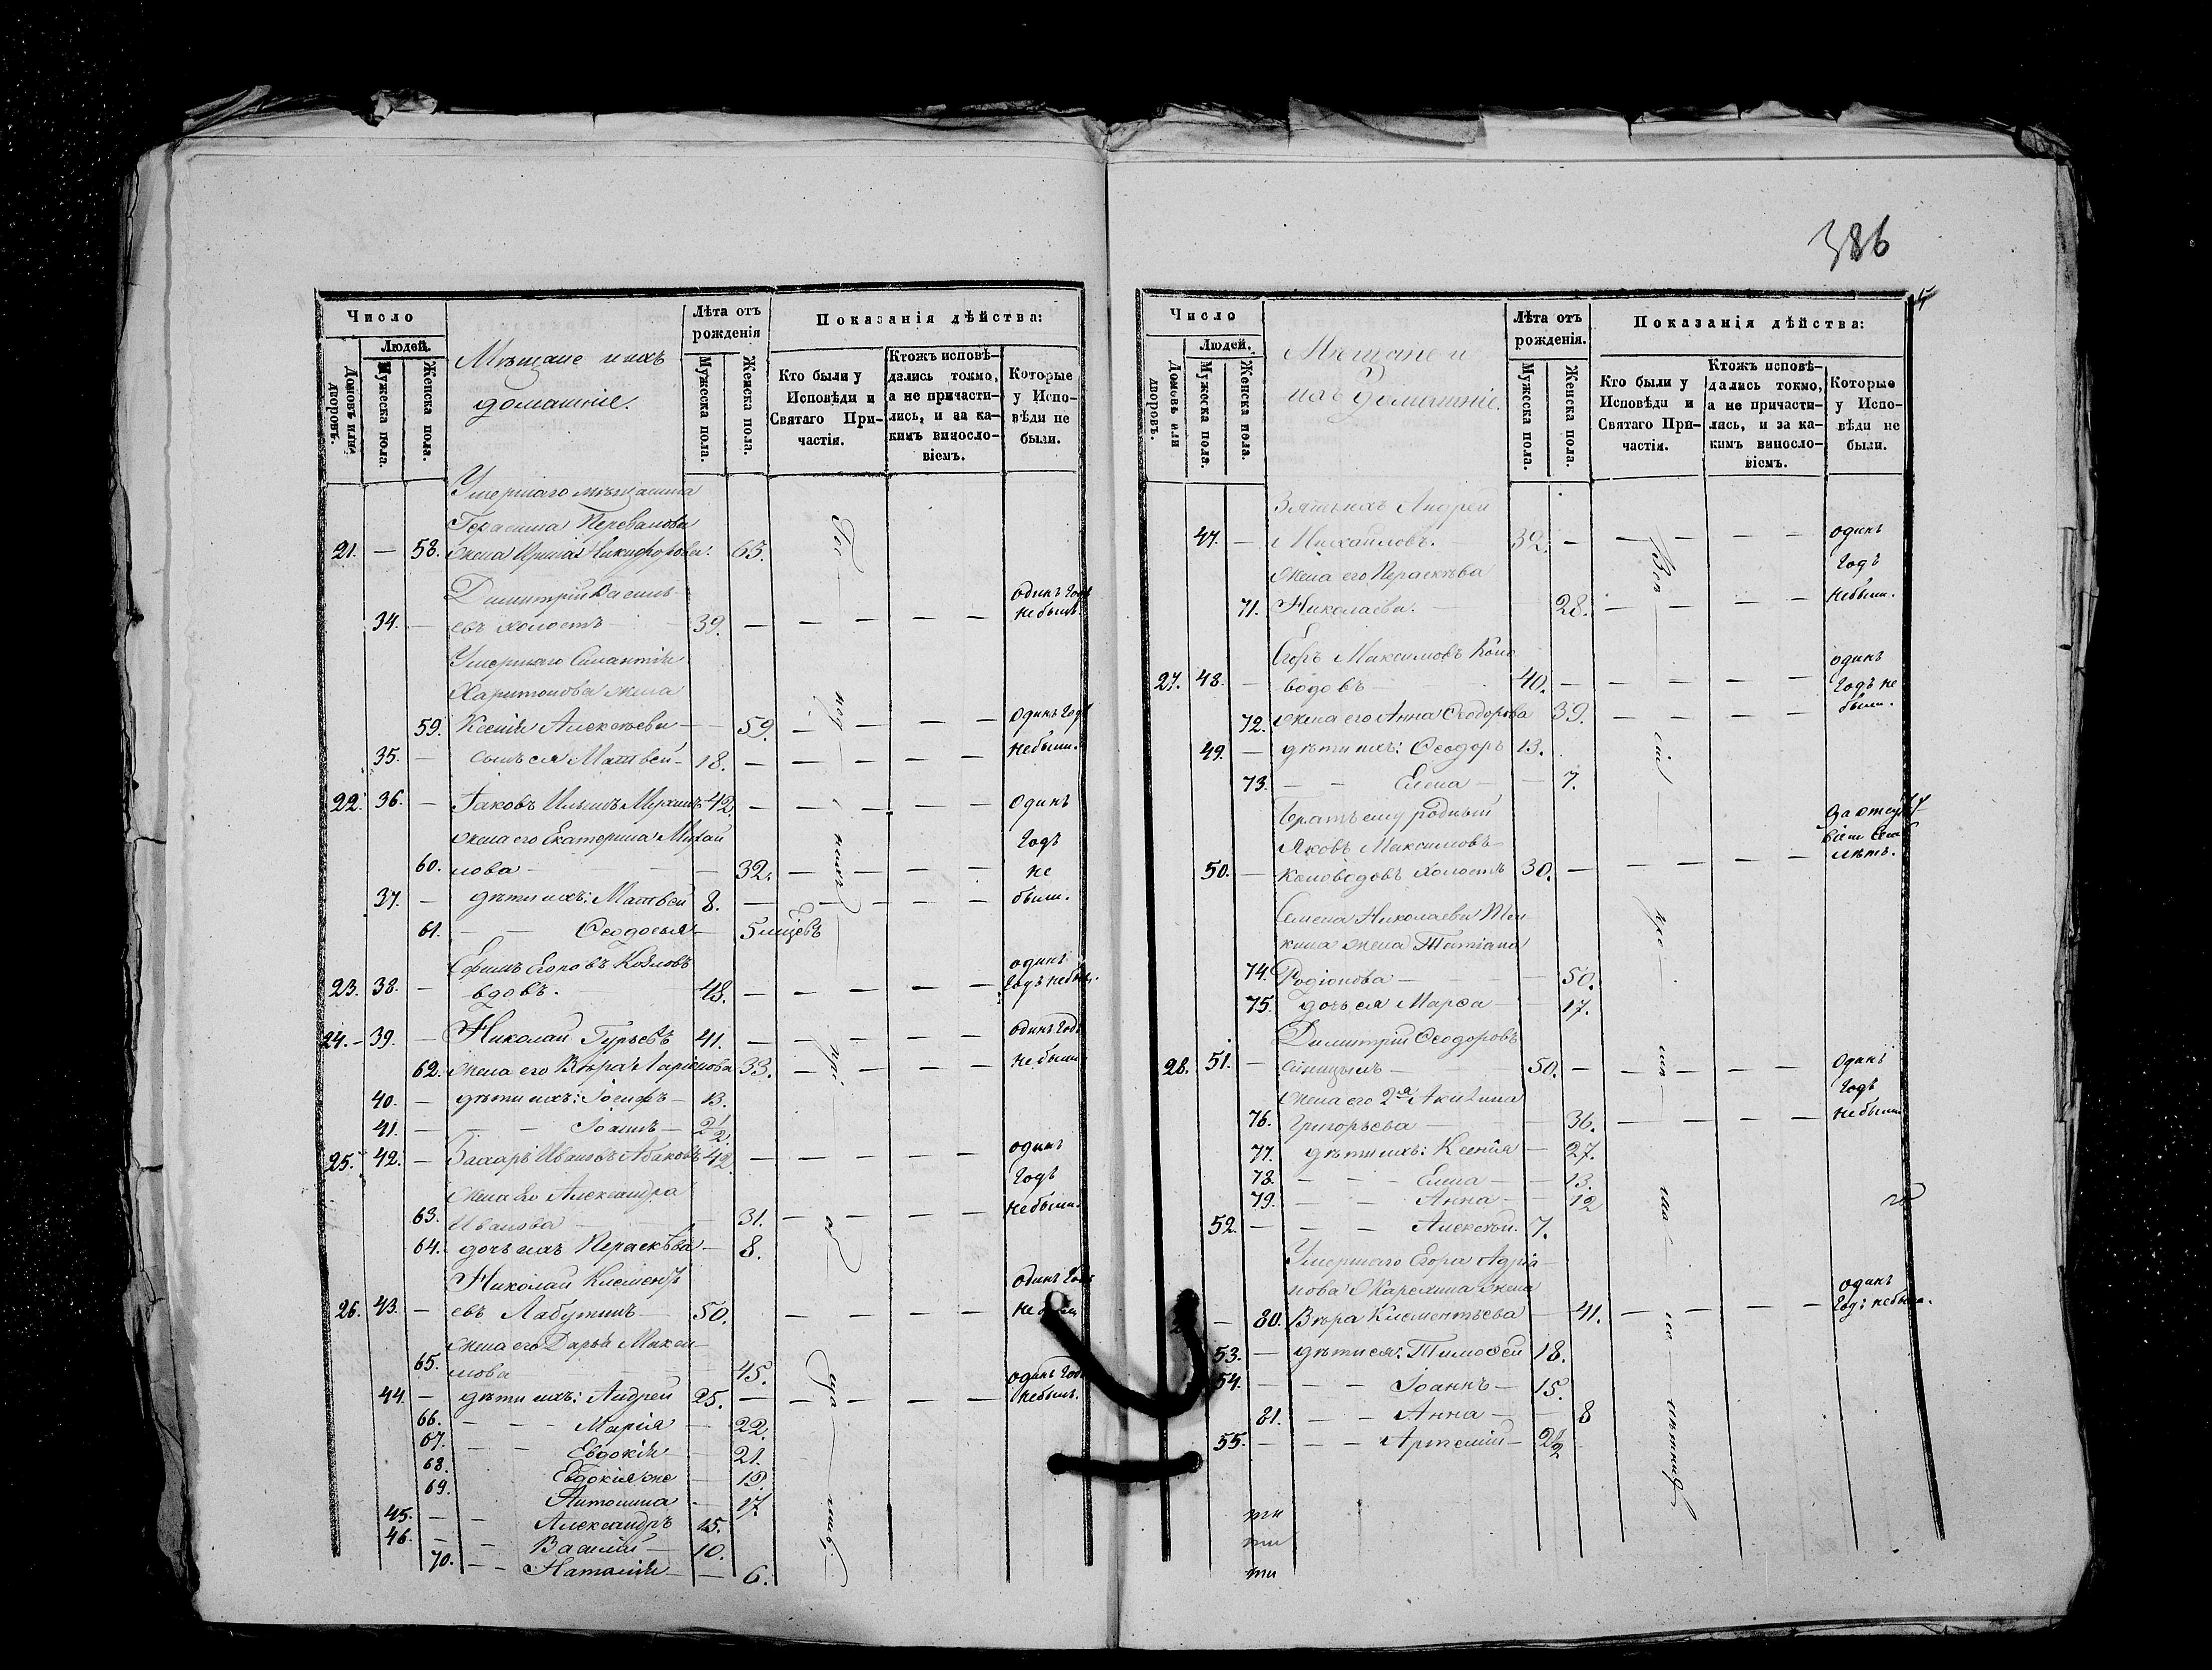 386
Число
Людей.
Домовъ или дворовъ.
Мужеска пола.
Женска пола.
Мѣщане и ихъ
домашніе.
Лѣта отъ рожденія
Мужеска пола.
Женска пола.
Показанія дѣйства:
Кто были у Исповѣди и Святаго Причастія.
Ктожъ исповѣдались токмо, а не причастились, и за какимъ винословіемъ.
Которые у Исповѣди не были.
Умершаго мѣщанина
Герасима Перевалова
21. — 58. жена Ирина Никифорова. 63.
Димитрій Василь- одинъ годъ
34. — евъ холостъ 39. — — — — — небылъ.
Умершаго
Харитонова жена
59. Ксенія Алексѣева — — 59. — — — — одинъ годъ
35. — сынъ ея Матвей — 18. — — — — — небыли.
22. 36. — Іаковъ Ильинъ 42. — — — — — одинъ
жена его Екатерина Михай годъ
60. лова — — 32. — — — — не
37. — дѣти ихъ: Матвей 8. — — — — — были.
61. — — Ѳеодосья — 5 мѣцевъ
Ефимъ Егоровъ Козловъ одинъ
23. 38. — вдовъ. 48. — — — — — годъ небылъ.
24. — 39. — Николай Гурьевъ 41. — — — — — одинъ годъ
62. жена его Вѣра Ларіонова 33. — — — — небыли
40. — дѣти ихъ: Іосифъ — 13.
41. — — — Іоаннъ — 2 1/2.
25. 42. — Захаръ Ивановъ Абаковъ 42. — — — — — одинъ
жена его Александра годъ
63. Иванова — — — 31. — — — — небыли.
64. дочь ихъ Параскѣва — 8.
Николай Клементь одинъ годъ
26. 43. — евъ Лабутинъ — 50. — — — — небылъ
жена его Дарья Михай-
65. лова — 45. одинъ годъ
44. — дѣти ихъ: Андрей 25. — — — — — небылъ.
66. — — — Марія — 22.
67. — — Евдокія — 21.
68. Евдокія же — 19.
69. Антонина — 17
45. — — Александръ 15.
46. — — Василій — 10.
70. — — Наталія — — 6.
Число
Людей.
Домовъ или дворовъ.
Мужеска пола.
Женска пола.
Мѣщане и
ихъ домашніе.
Лѣта отъ рожденія.
Мужеска пола.
Женска пола.
Показанія дѣйства:
Кто были у Исповѣди и Святаго Причастія.
Ктожъ исповѣдались токмо, а не причастились, и за какимъ винословіемъ.
Которые у Исповѣди не были.
Зять ихъ Андрей
47. — Михайловъ. 32. — — — — — одинъ
жена его Параскѣва годъ
71. Николаева. — 28. — — — — небыли.
Егоръ Максимовъ Коно одинъ
27. 48. — водовъ — 40. — — — — — годъ не
72. жена его Анна Ѳеодорова 39. — — — — были.
49. — дѣти ихъ: Ѳеодоръ 13.
73. — — Елена — — 7.
Братъ ему родный за отсутст
Яковъ Максимовъ віем
50. — Коноводовъ холостъ 30. — — — — — лѣтъ.
Семена Николаева
жена Татіана
74. Родіонова — — 50.
75. дочь ея Марѳа — — 17.
Димитрій Ѳеодоровъ
28. 51. — Синицынъ — 50. — — — — — одинъ
жена его 2я Акилина годъ
76. Григорьева — — 36. — — — — небыли
77. дѣти ихъ: Ксенія — 27.
78. — — — Елена — — 13.
79. — — Анна — — 12
52. — — — Алексѣй. 7.
Умершаго Егора Адріа-
нова жена одинъ
— 80. Вѣра Клементьева — 41. — — — — годъ небыла.
53. — дѣти ея: Тимоѳей 18.
54. — — — Іоаннъ — 15.
81. — — Анна — — 8
55. — — — Артемій — 2 1/2
ти
ти
ти